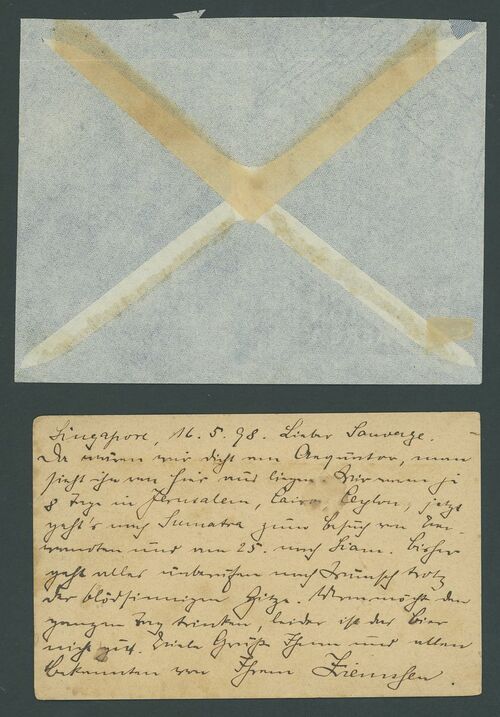 Singapore, 16. 5. 98. Lieber Sauverze.
Da wären wir dicht am Aequator, man
sieht ihn von hier aus liegen. Wir waren je
8 Tage in Jerusalem, Cairo, Ceylon, jetzt
geht's nach Sumatra zum Besuch von Ver-
wandten und am 25. nach Siam. Bisher
geht alles unberufen nach Wunsch trotz
der blödsinnigen Hitze. Man möcht den
ganzen Tag trinken, leider ist das Bier
nicht gut. Viele Grüße Ihnen und allen
Bekannten von Ihrem Ziemssen.